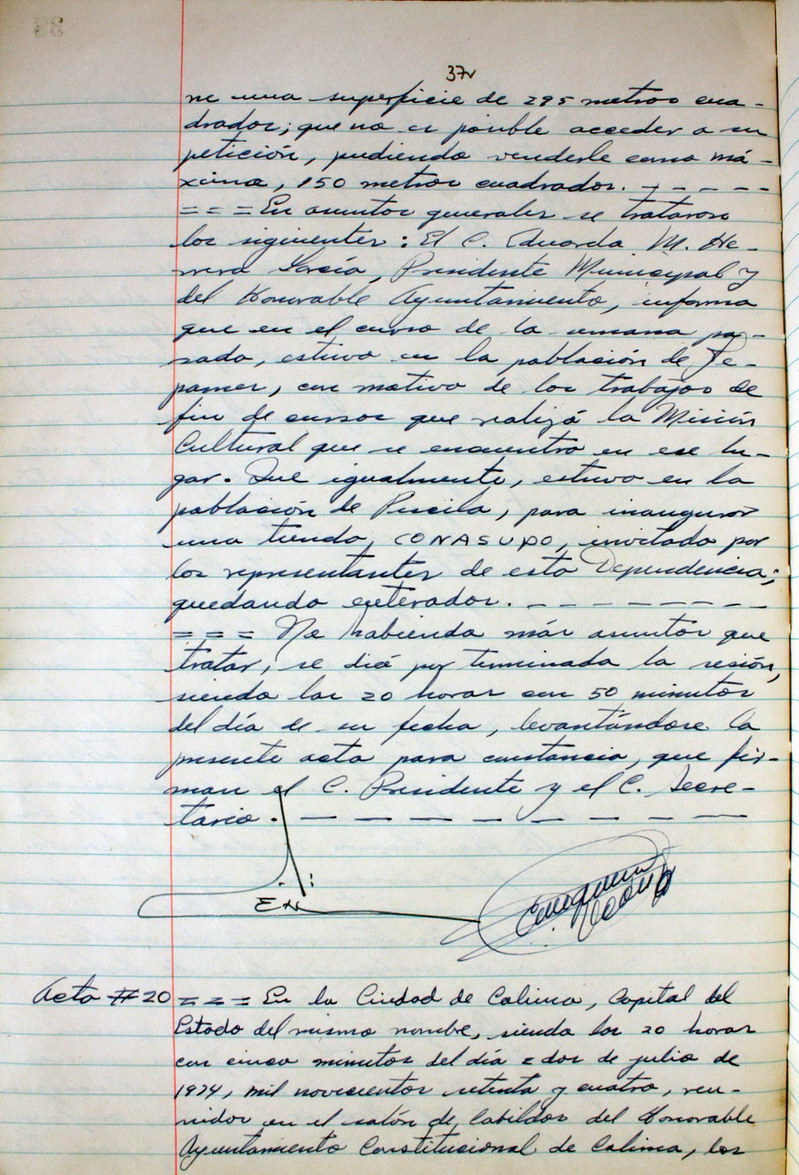 37v
ne una superficie de 295 metros cua-
drados; que no es posible acceder a su
petición, pudiendo venderle como má-
xima, 150 metros cuadrados. - - - - -
= = = En asuntos generales se trataron
los siguientes: El C. Eduardo M. He-
rrera García, Presidente Municipal y
del Honorable Ayuntamiento, informa
que en el curso de la semana pa-
sada, estuvo en la población de Te-
pames, con motivo de los trabajos de
fin de cursos que realizó la Misión
Cultural que se encuentra en ese lu-
gar. Que igualmente, estuvo en la
población de Piscila, para inaugurar
una tienda, CONASUPO, invitado por
los representantes de esta Dependencia;
quedando enterados. - - - - - - - - -
= = = No habiendo más asuntos que
tratar, se dió por terminada la sesión,
siendo las 20 horas con 50 minutos
del día de su fecha, levantándose la
presente acta para constancia, que fir-
man el C. Presidente y el C. Secre-
tario. - - - - - - - - - -
Acta # 20 = = = En la Ciudad de Colima, Capital del
Estado del mismo nombre, siendo las 20 horas
con cinco minutos del día 2 dos de julio de
1974, mil novecientos setenta y cuatro, reu-
nidos en el salón de Cabildos del Honorable
Ayuntamiento Constitucional de Colima, los